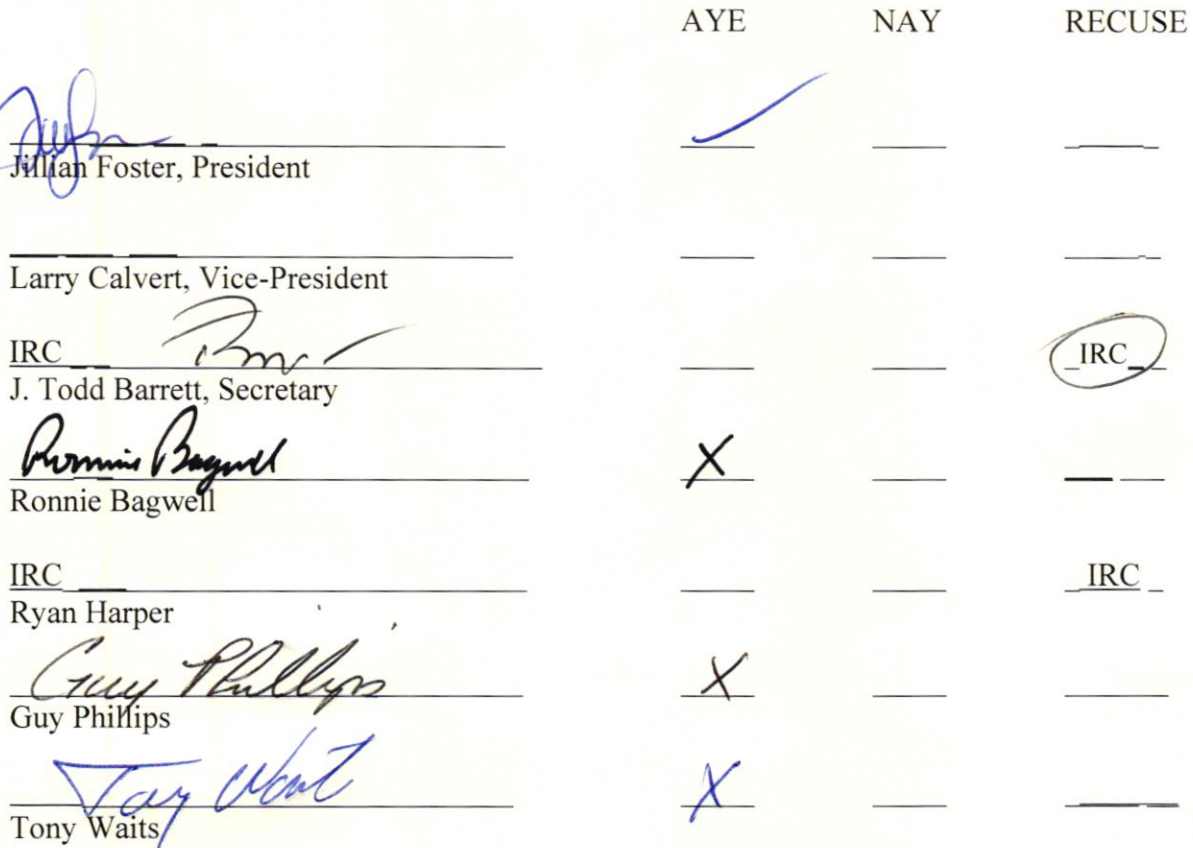 AYE NAY RECUSE
Jillian Foster, President
Larry Calvert, Vice-President
IRC IRC
J. Todd Barrett, Secretary
Ronnie Bagwell X
Ronnie Bagwell
IRC IRC
Ryan Harper
Guy Phillips X
Guy Phillips
Tony Wait X
Tony Waits